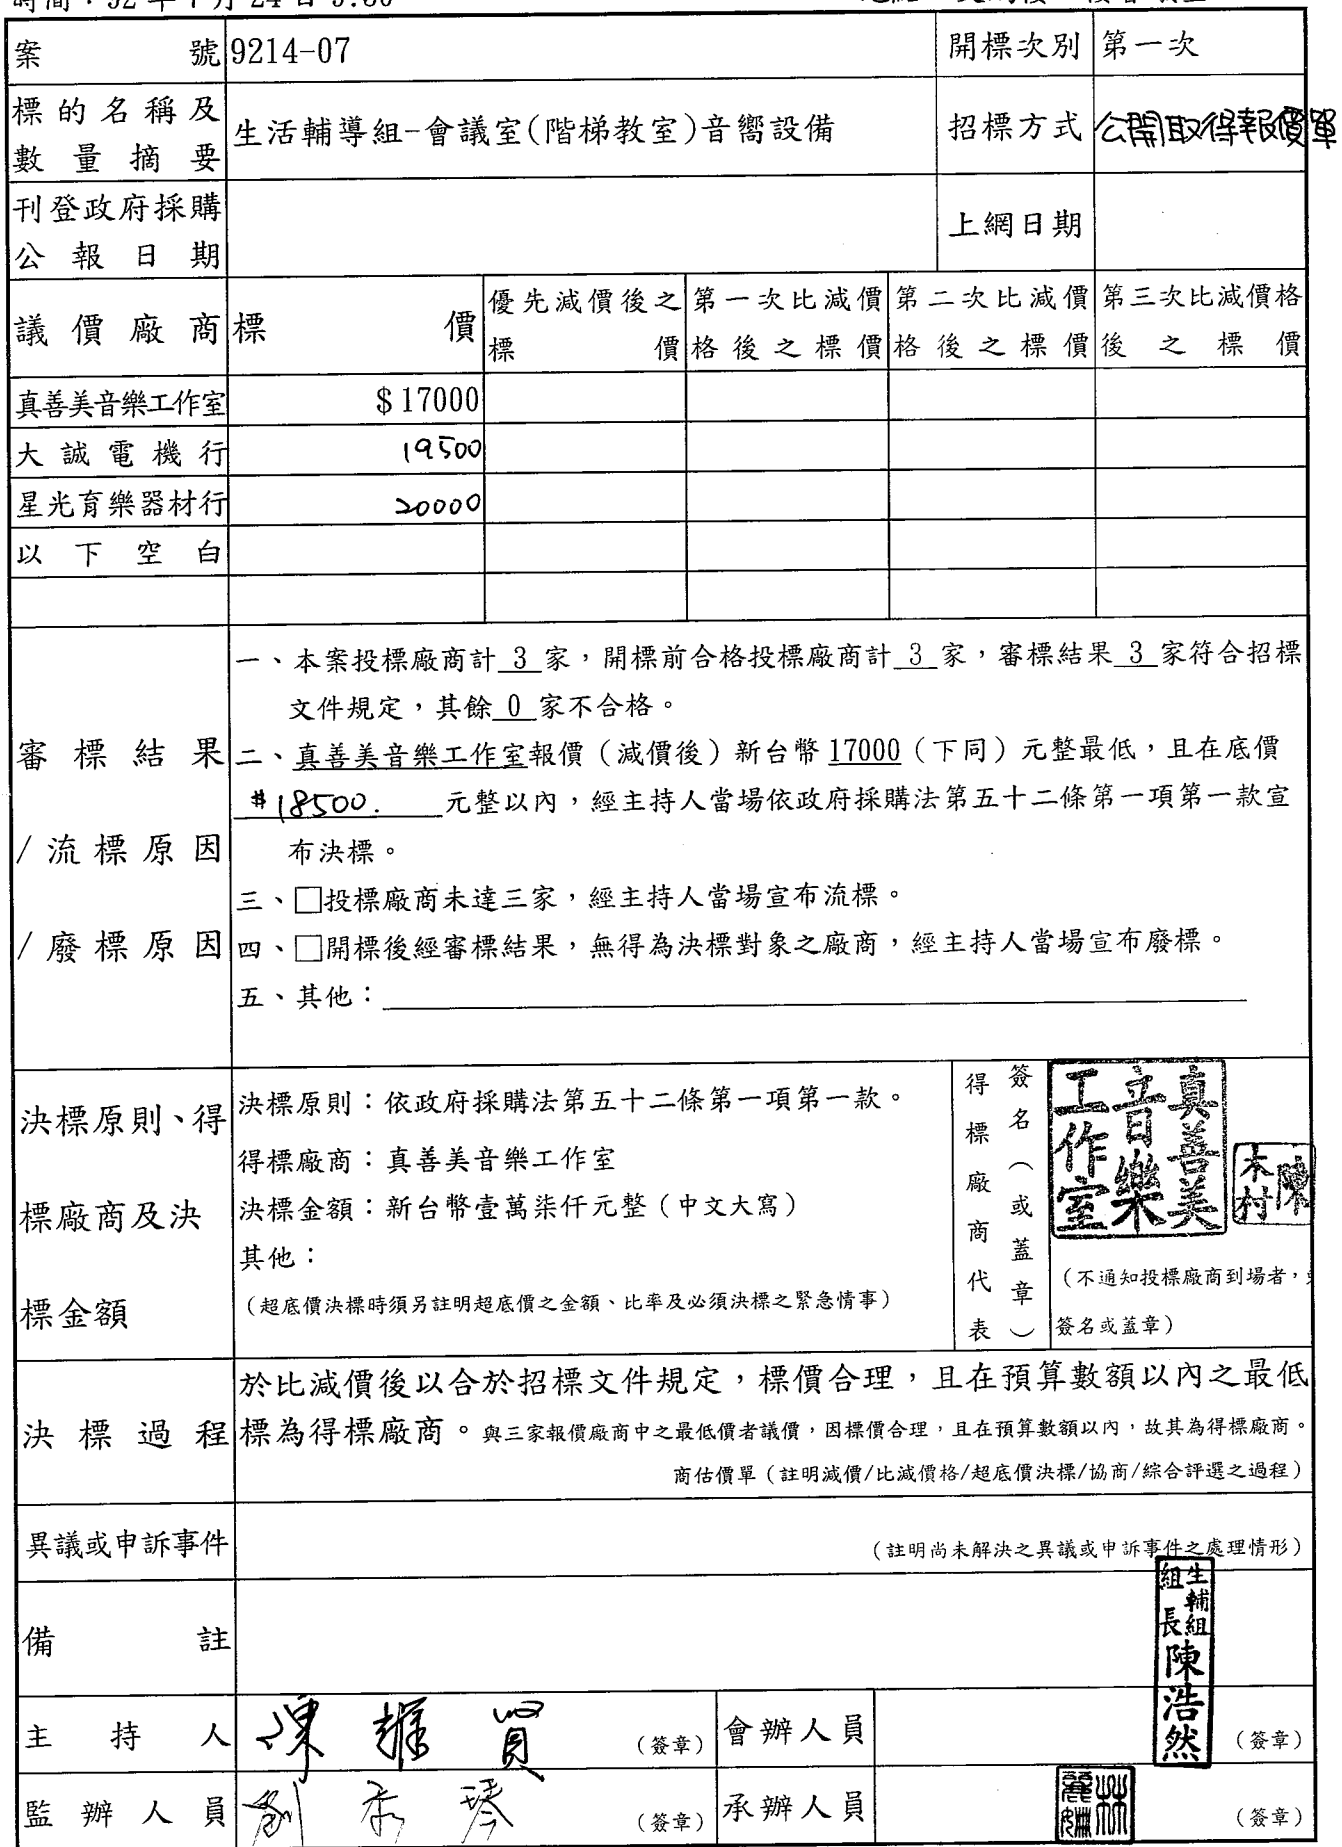 案號 9214-07 開標次別 第一次
標的名稱及
數量摘要
生活輔導組-會議室(階梯教室)音嚮設備 招標方式 公開取得報價單
刊登政府採購
公報日期
上網日期
議價廠商 標價
優先減價後之
標價
第一次比減價
格後之標價
第二次比減價
格後之標價
第三次比減價格
後之標價
真善美音樂工作室 $17000
大誠電機行 19500
星光育樂器材行 20000
以下空白
審標結果
/流標原因
/廢標原因
一、本案投標廠商計 3 家，開標前合格投標廠商計 3 家，審標結果 3 家符合招標
文件規定，其餘 0 家不合格。
二、真善美音樂工作室報價（減價後）新台幣 17000（下同）元整最低，且在底價
$18500. 元整以內，經主持人當場依政府採購法第五十二條第一項第一款宣
布決標。
三、□投標廠商未達三家，經主持人當場宣布流標。
四、□開標後經審標結果，無得為決標對象之廠商，經主持人當場宣布廢標。
五、其他：
決標原則、得
標廠商及決
標金額
決標原則：依政府採購法第五十二條第一項第一款。
得標廠商：真善美音樂工作室
決標金額：新台幣壹萬柒仟元整（中文大寫）
其他：
（超底價決標時須另註明超底價之金額、比率及必須決標之緊急情事）
得標廠商代表
簽名（或蓋章）
真善美
音樂
工作室
陳
木村
（不通知投標廠商到場者，
簽名或蓋章）
決標過程
於比減價後以合於招標文件規定，標價合理，且在預算數額以內之最低
標為得標廠商。與三家報價廠商中之最低價者議價，因標價合理，且在預算數額以內，故其為得標廠商。
商估價單（註明減價/比減價格/超底價決標/協商/綜合評選之過程）
異議或申訴事件 （註明尚未解決之異議或申訴事件之處理情形）
備註
生輔組
組長
陳浩然
主持人 陳 賢 （簽章） 會辦人員 （簽章）
監辦人員 劉 琴 （簽章） 承辦人員 林麗 （簽章）